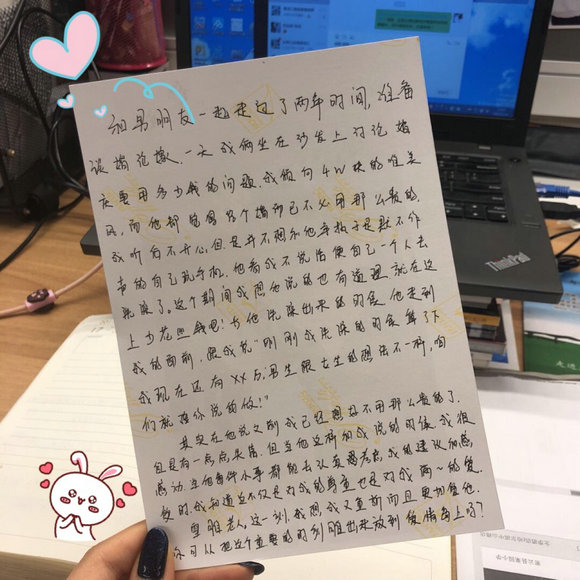 和男朋友一起走过了两年时间,准备
谈婚论嫁.一天我俩坐在沙发上讨论婚
庆要用多少钱的问题.我倾向4W块的唯美
风,而他却觉得 个婚而已不必用那么贵的.
我听后不开心,但是并不想和他争执于是默不作
声的自己玩手机.他看我不说话便自己一个人去
洗澡了.这个期间我想他说的也有道理就在这
上少花些钱吧!当他洗澡出来的时候他走到
我的面前,跟我说"刚刚我洗澡的时候算了下
我现在还有XX万.男生跟女生的想法不一样,咱
们就按你说的做!"
其实在他说之前我已经想好不用那么贵的了.
但是有一点点失落.但当他这样和我说的时候我很
感动.这 件小事都能去认真思考 我的建议和感
受的.我知道这不仅是对我的尊重也是对我 的爱.
皇雅老人,这一刻,我想我又重新而且更加爱他.
你可从把这个重要的时刻雕出来放到爱情岛上吗?
ThinkPad